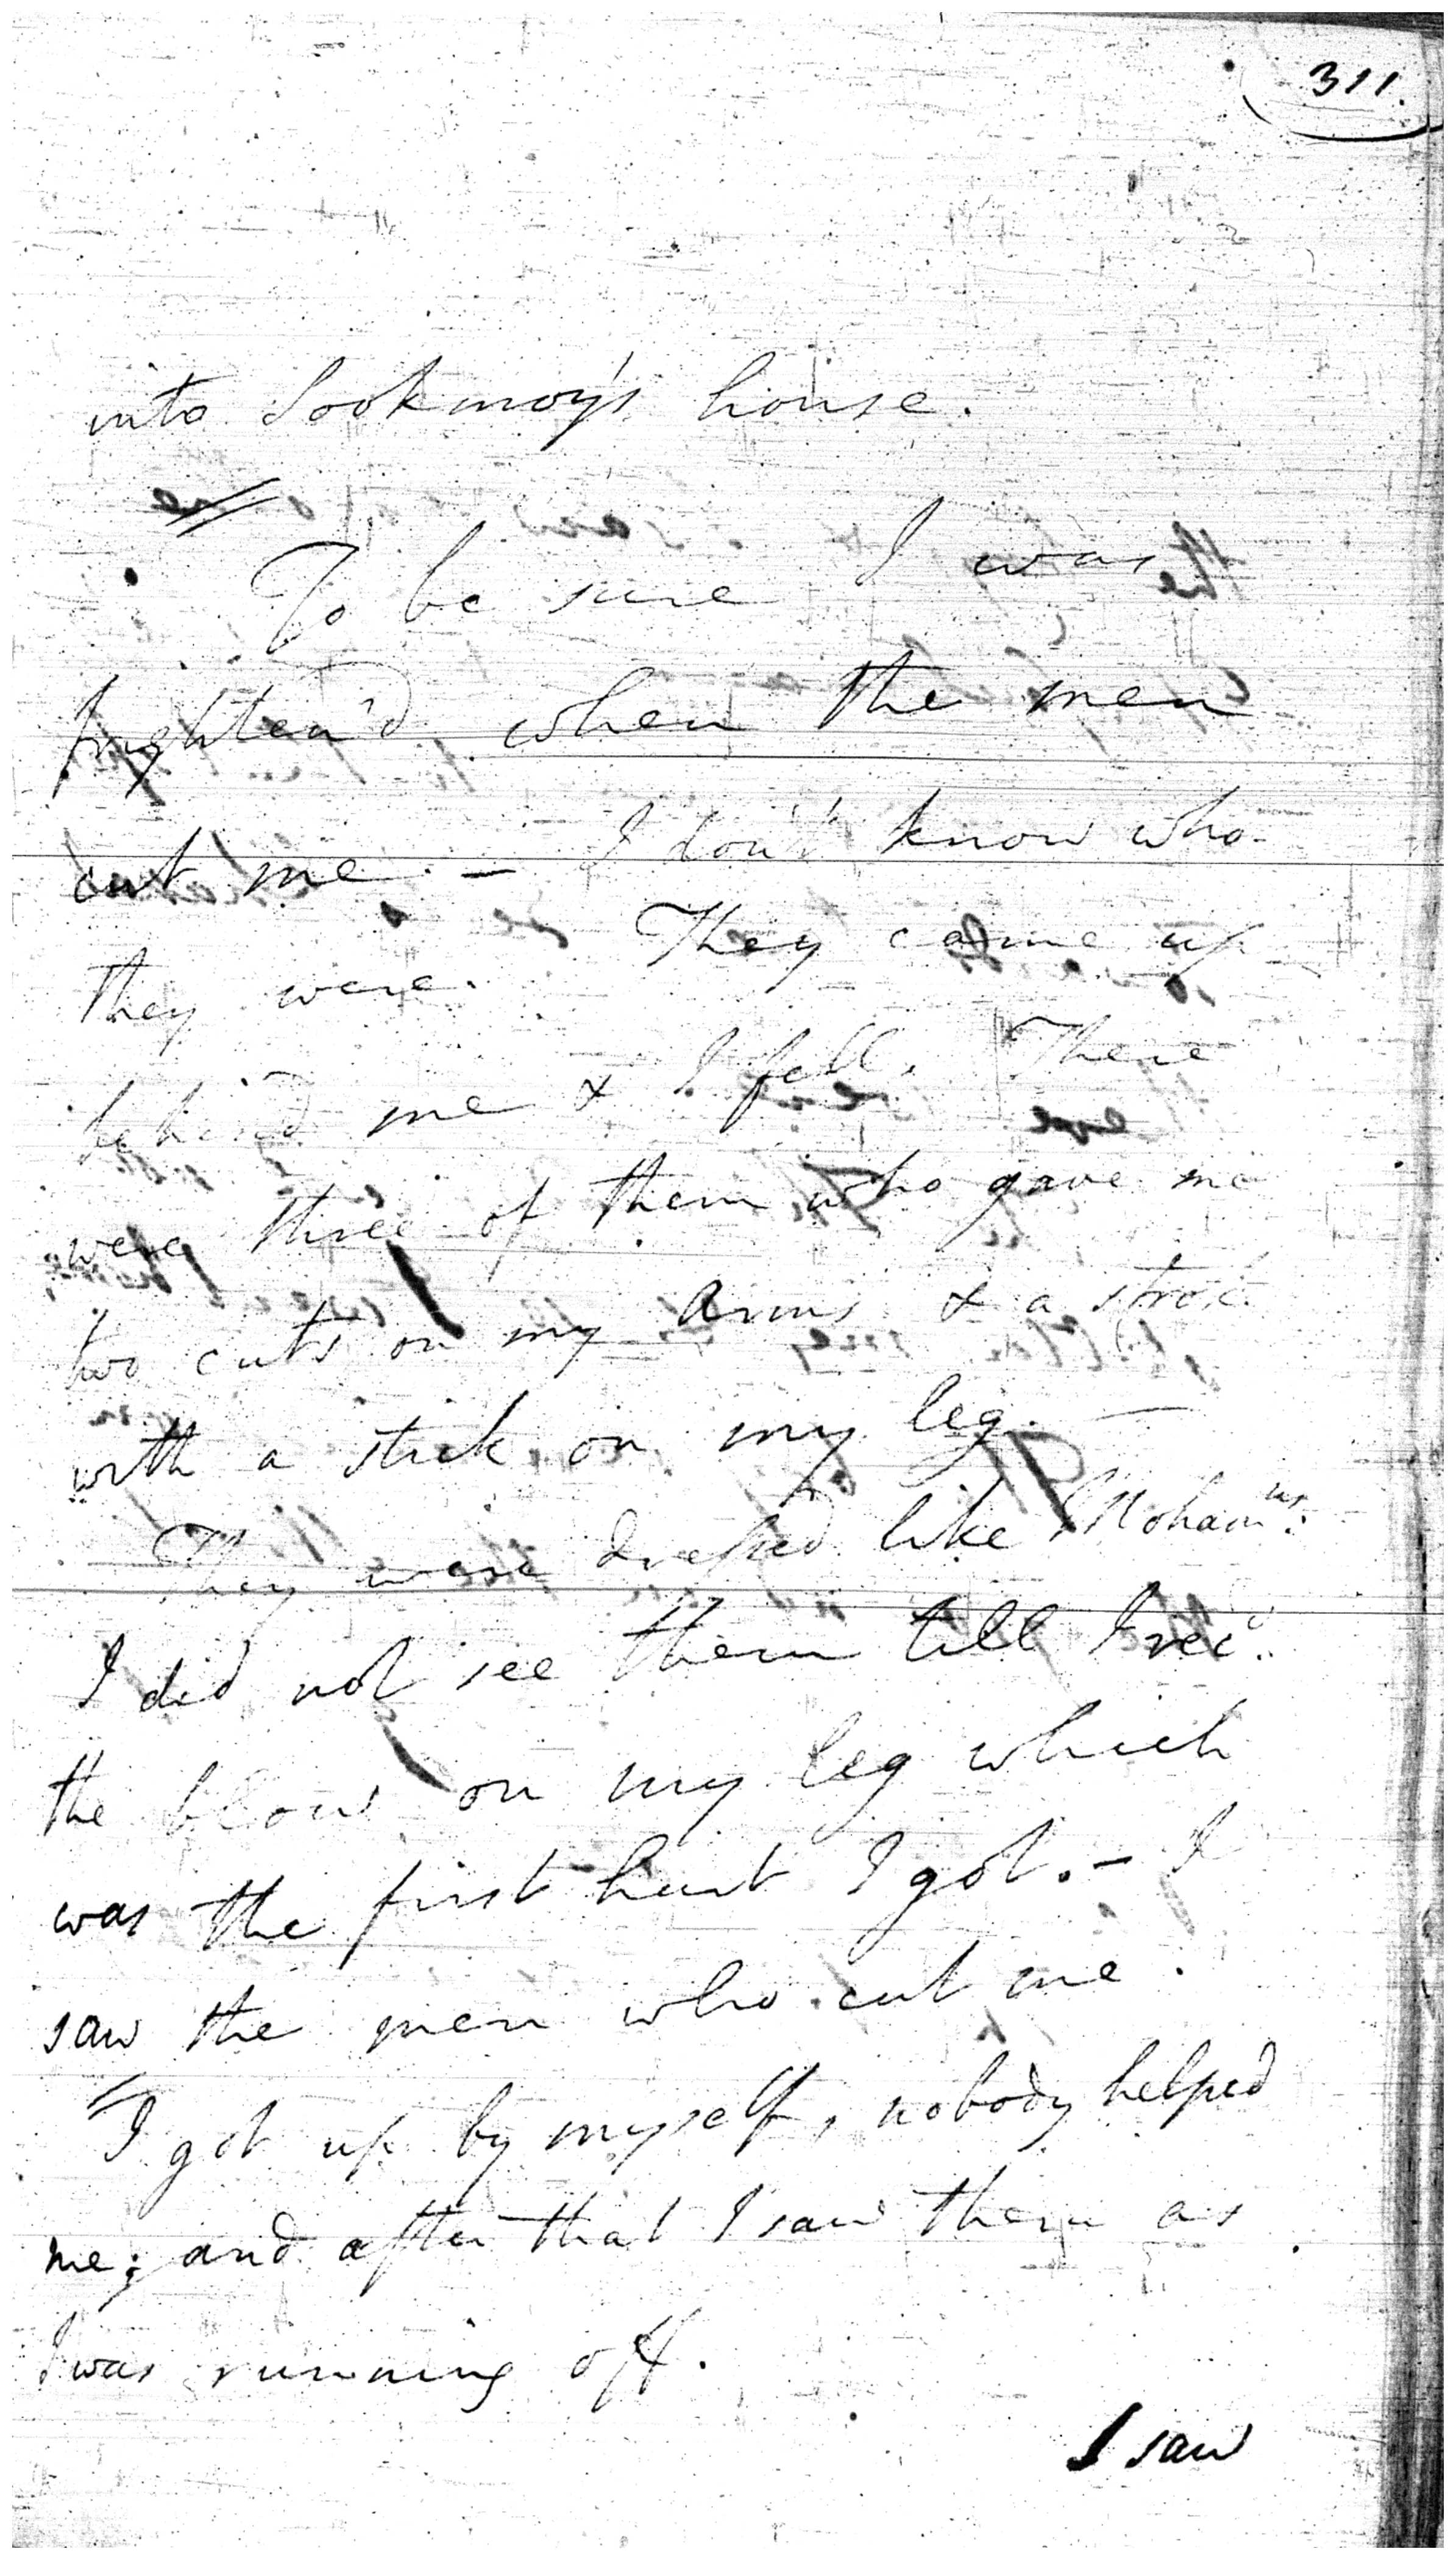 311.
into Sookmoy's house.
To be sure I was
frighten'd when the men
cut me. — I don't know who
they were. They came up
behind me & I fell. There
were three of them who gave me
two cuts on my Arms & a stroke
with a stick on my leg. —
They were dressed like Moham.ns
I did not see them till I rec.d
the blow on my leg which
was the first hurt I got. — I
saw the men who cut me.
I got up by myself, nobody helped
me; and after that I saw them as
I was running off.
I saw